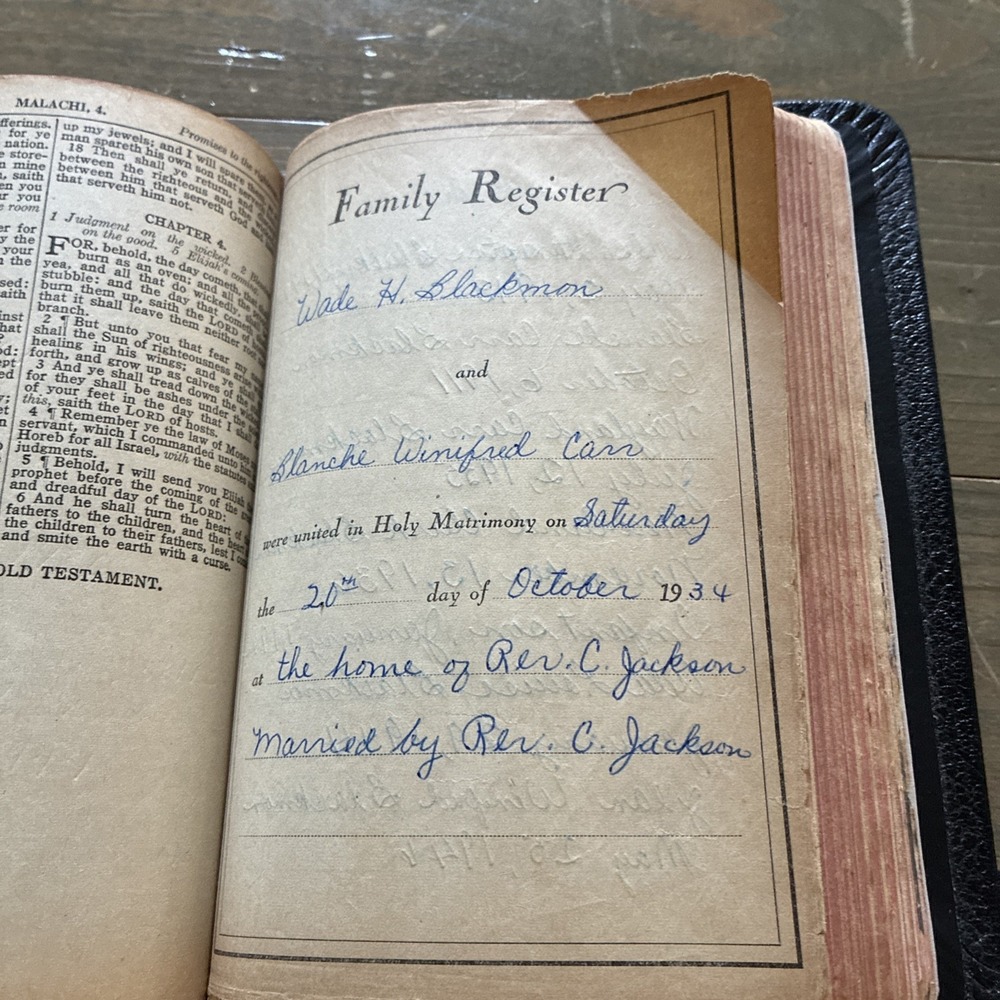 MALACHI, 4.
fferings.
for ye
nation.
store-
n mine
, saith
en you
r you
room
er for
y the
your
n the
sed:
aith
inst
hat
od:
ept
ed
y;
et
n
Promises to the
up my jewels; and I will spare
man spareth his own son that
18 Then shall ye return, and
between the righteous and the
between him that serveth God and
that serveth him not.
CHAPTER 4.
1 Judgment on the wicked. 2
on the good. 5 Elijah's coming
FOR, behold, the day cometh, that
burn as an oven; and all the
yea, and all that do wickedly, shall
stubble: and the day that cometh
burn them up, saith the LORD of
that it shall leave them neither root
branch.
2 ¶ But unto you that fear my
shall the Sun of righteousness arise
healing in his wings; and ye shall
forth, and grow up as calves of the
3 And ye shall tread down the
for they shall be ashes under the
of your feet in the day that I shall
this, saith the LORD of hosts.
4 ¶ Remember ye the law of Moses
servant, which I commanded unto
Horeb for all Israel, with the statutes
judgments.
5 ¶ Behold, I will send you Elijah
prophet before the coming of the
and dreadful day of the LORD:
6 And he shall turn the heart of
fathers to the children, and the heart
the children to their fathers, lest I
and smite the earth with a curse.
OLD TESTAMENT.
Family Register
Wade H. Blackmon
and
Blanche Winifred Carr
were united in Holy Matrimony on Saturday
the 20th day of October 1934
at the home of Rev. C. Jackson
Married by Rev. C. Jackson